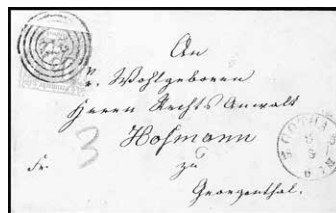 An
Sr. Wohlgeboren
Herrn Rechts Anwalt
Hofmann
Fr. 3 zu
Georgenthal.
GOTHA